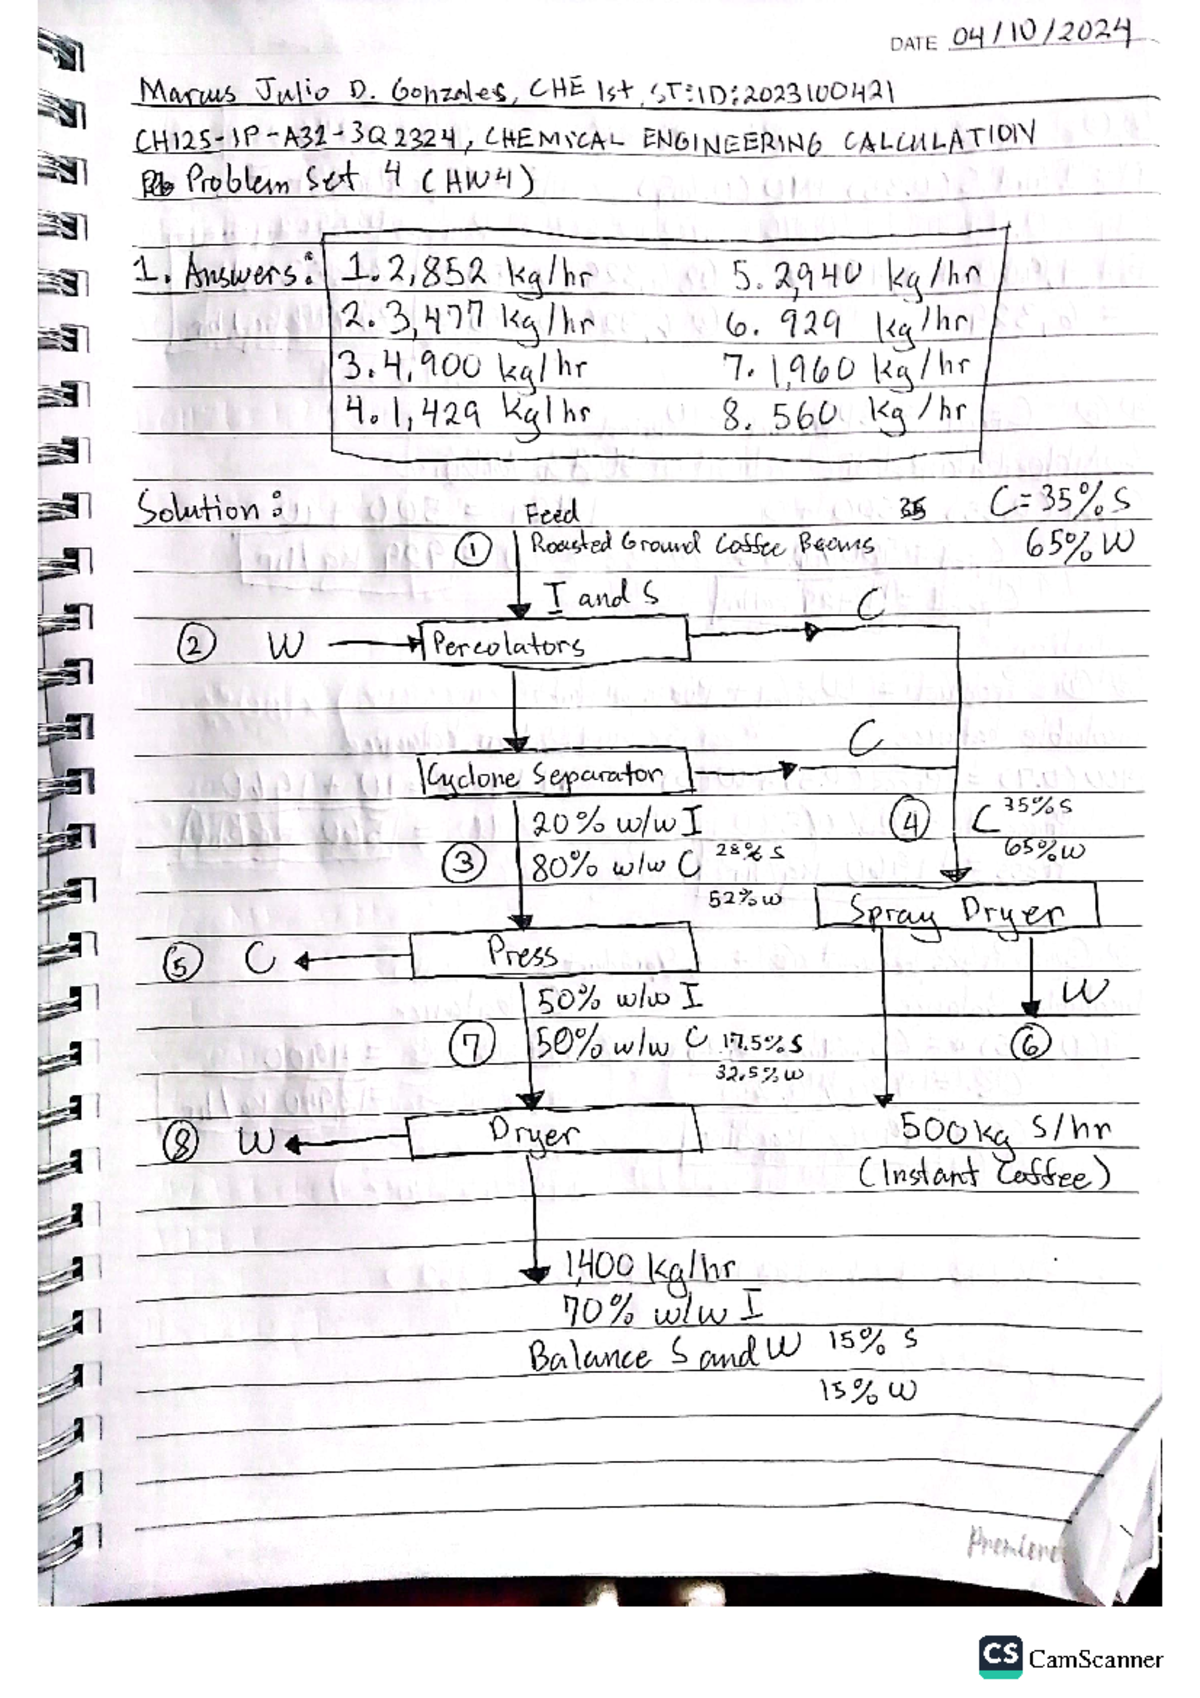 DATE 04/10/2024
Marcus Julio D. Gonzales, CHE 1st, ST:ID:2023100421
CH125-1P-A32-3Q2324, CHEMICAL ENGINEERING CALCULATION
Problem Set 4 (HW4)
1. Answers: 1. 2,852 kg/hr 5. 2,940 kg/hr
2. 3,477 kg/hr 6. 929 kg/hr
3. 4,900 kg/hr 7. 1,960 kg/hr
4. 1,429 kg/hr 8. 560 kg/hr
Solution: Feed C=35% S
① Roasted Ground Coffee Beans 65% W
I and S
C
② W Percolators
C
Cyclone Separator
20% w/w I ④ C 35% S
③ 80% w/w C 28% S 65% W
52% W
Spray Dryer
⑤ C Press
W
50% w/w I
⑦ 50% w/w C 17.5% S ⑥
32.5% W
⑧ W Dryer 500 kg S/hr
(Instant Coffee)
1,400 kg/hr
70% w/w I
Balance S and W 15% S
15% W
Premiere
CS CamScanner